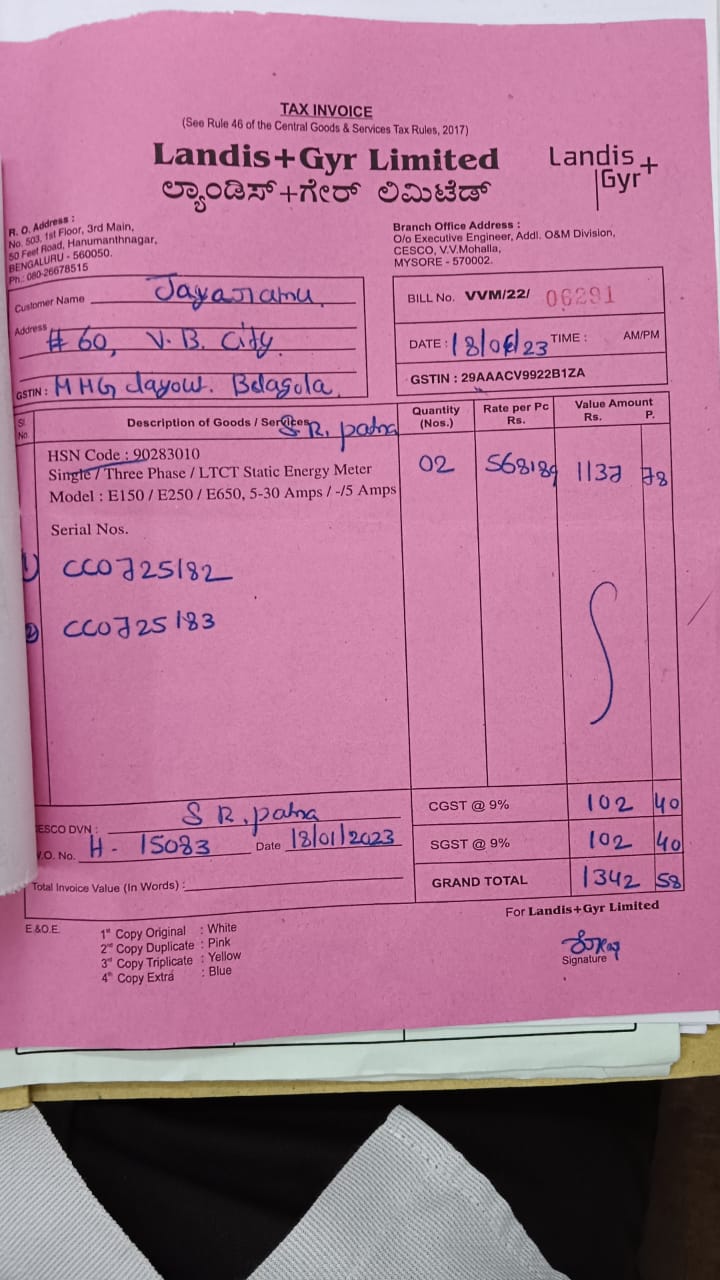 TAX INVOICE
(See Rule 46 of the Central Goods & Services Tax Rules, 2017)
Landis+Gyr Limited
ಲ್ಯಾಂಡಿಸ್+ಗೇರ್ ಲಿಮಿಟೆಡ್
Landis
Gyr+
R. O. Address :
No. 503, 1st Floor, 3rd Main,
50 Feet Road, Hanumanthnagar,
BENGALURU - 560050.
Ph.: 080-26678515
Branch Office Address :
O/o Executive Engineer, Addl. O&M Division,
CESCO, V.V.Mohalla,
MYSORE - 570002.
Customer Name Jayaramu.
Address # 60, V. B. City.
GSTIN : MHG layout. Belagola.
S R, patna
BILL No. VVM/22/ 06291
DATE : 18/01/23 TIME : AM/PM
GSTIN : 29AAACV9922B1ZA
Sl. No. Description of Goods / Services Quantity (Nos.) Rate per Pc Rs. Value Amount Rs. P.
HSN Code : 90283010
Single / Three Phase / LTCT Static Energy Meter 02 568.89 1137 78
Model : E150 / E250 / E650, 5-30 Amps / -/5 Amps
Serial Nos.
1) CC0725182
2) CC0725183
CGST @ 9% 102 40
SGST @ 9% 102 40
GRAND TOTAL 1342 58
ESCO DVN : S R, patna
.O. No. H - 15083 Date 18/01/2023
Total Invoice Value (In Words) :
For Landis+Gyr Limited
E.&O.E.
1st Copy Original : White
2nd Copy Duplicate : Pink
3rd Copy Triplicate : Yellow
4th Copy Extra : Blue
Signature